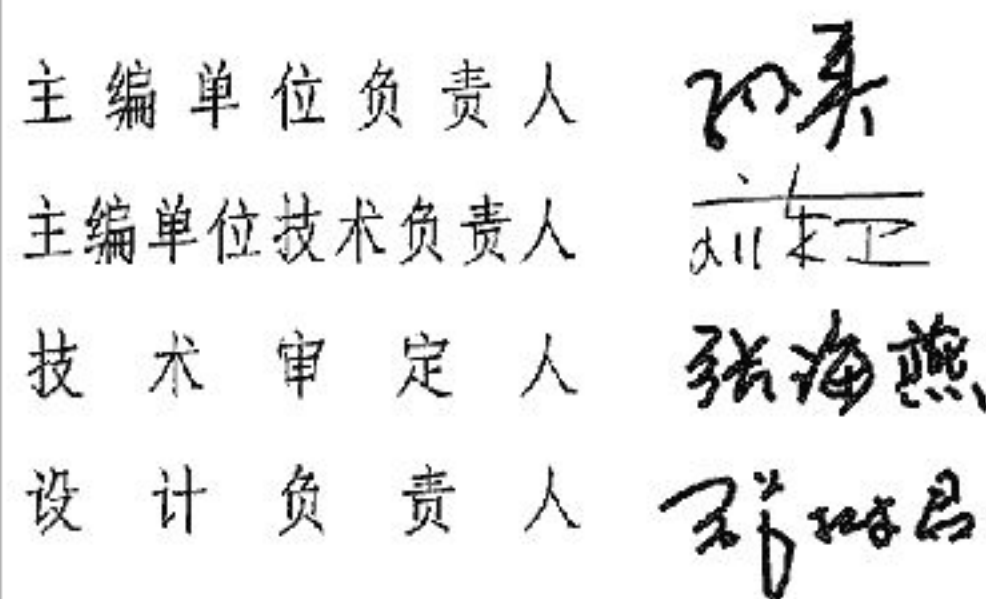 主编单位负责人
主编单位技术负责人
技术审定人 张海燕
设计负责人